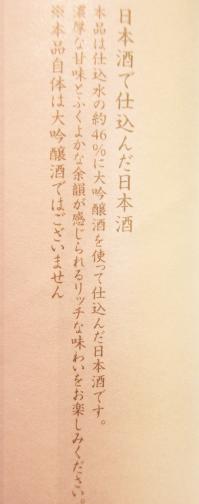 日本酒で仕込んだ日本酒
本品は仕込水の約46%に大吟醸酒を使って仕込んだ日本酒です。
濃厚な甘味とふくよかな余韻が感じられるリッチな味わいをお楽しみください。
※本品自体は大吟醸酒ではございません